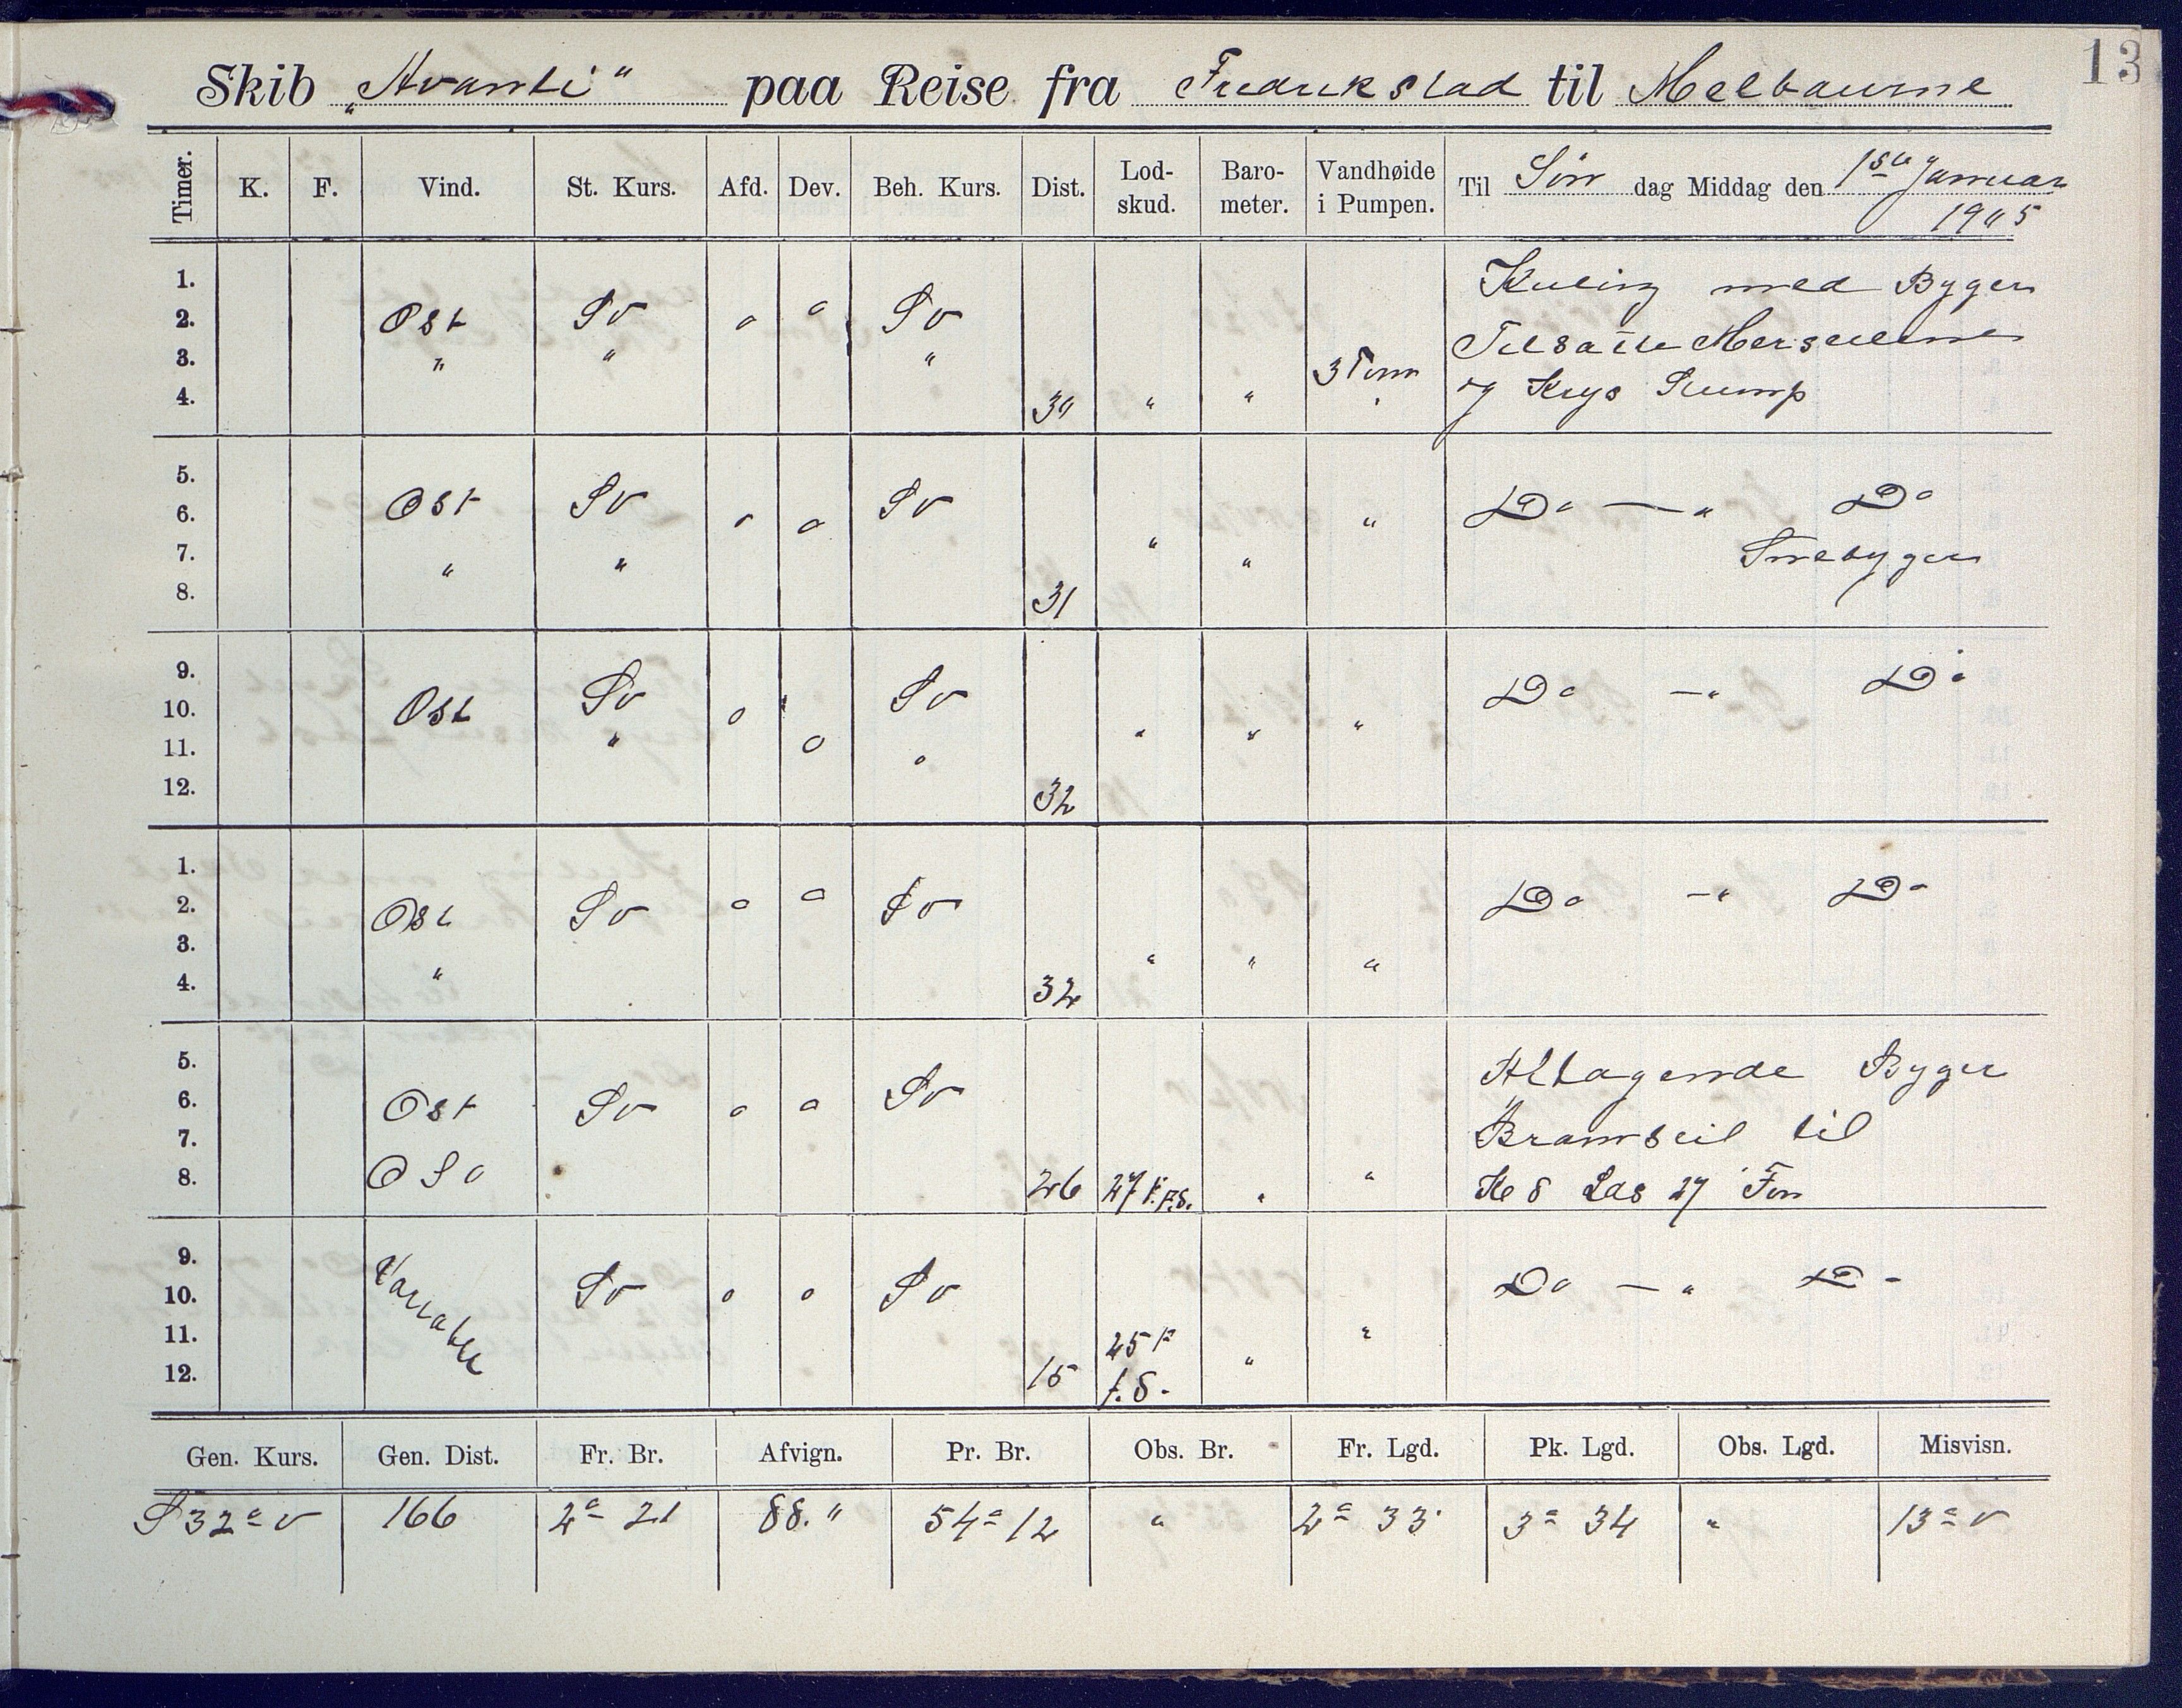 13
Skib „Avanti" paa Reise fra Fredrikstad til Melbourne
Timer. K. F. Vind. St. Kurs. Afd. Dev. Beh. Kurs. Dist. Lod-skud. Baro-meter. Vandhøide i Pumpen. Til Søn dag Middag den 1ste Januar 1905
1. Kuling med Byger
2. Ost Sv o o Sv Tilsatte Merseilene
3. " " " 3 Tom og Krys Stump
4. 30 " "
5.
6. Ost Sv o o Sv " Do — " Do
7. " " " " Snebyger
8. 31
9. Do — " Do
10. Ost Sv o Sv
11. " o " " " "
12. 32
1.
2. Ost Sv o o Sv Do — " Do
3. " " " "
4. 32
5. Aftagende Byger
6. Ost Sv o o Sv Bramseil til
7.
8. OSO 26 27 F. F.S. " " Kl 8 Lod 27 Fvn
9.
10. Variabel Sv o o Sv Do — " Do
11. 25 F "
12. 15 f.S. "
Gen. Kurs. Gen. Dist. Fr. Br. Afvign. Pr. Br. Obs. Br. Fr. Lgd. Pk. Lgd. Obs. Lgd. Misvisn.
S 32° v 166 2° 21 88. " 54° 12 " 2° 33' 3° 34 " 13° v